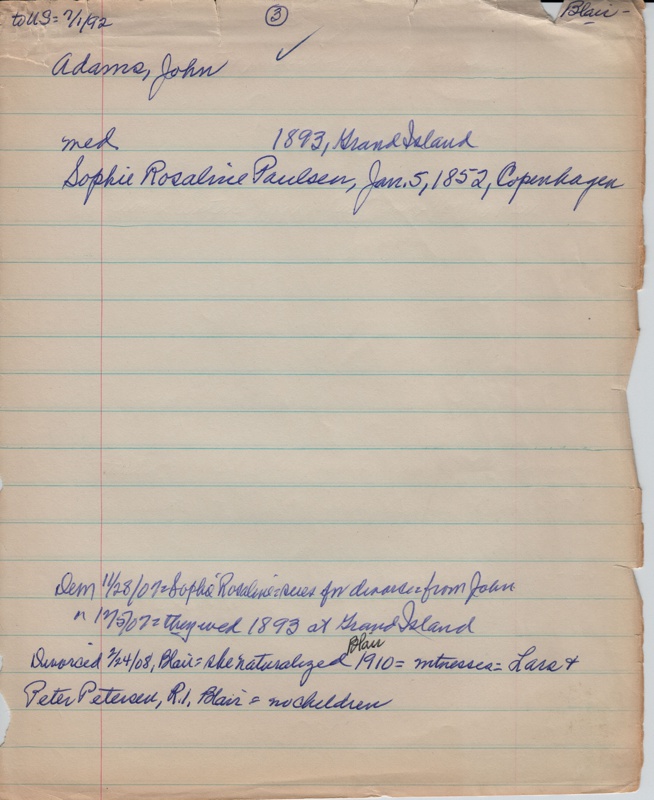 to US = 7/1/92
③
Blair -
Adams, John ✓
med 1893, Grand Island
Sophie Rosaline Paulsen, Jan. 5, 1852, Copenhagen
Dem 11/28/07 = Sophie Rosaline = sues for divorce = from John
" 12/5/07 = they wed 1893 at Grand Island
Blair
Divorced 2/24/08, Blair = she naturalized 1910 = witnesses = Lars +
Peter Petersen, R.1, Blair = no children